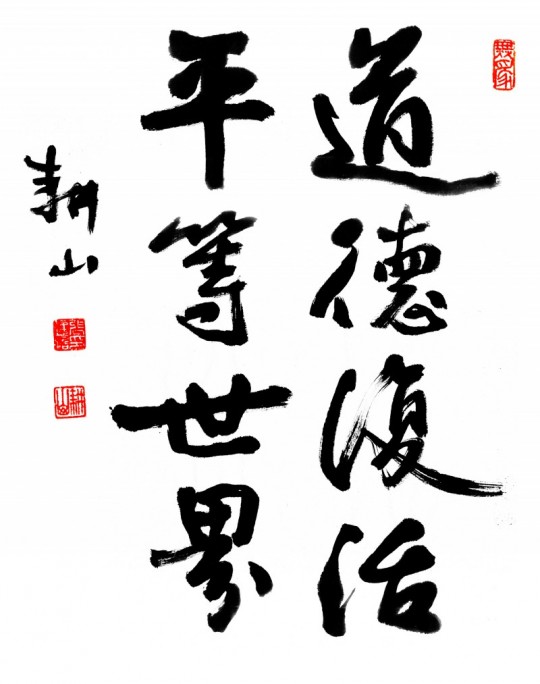 道德復活
平等世界
耕山